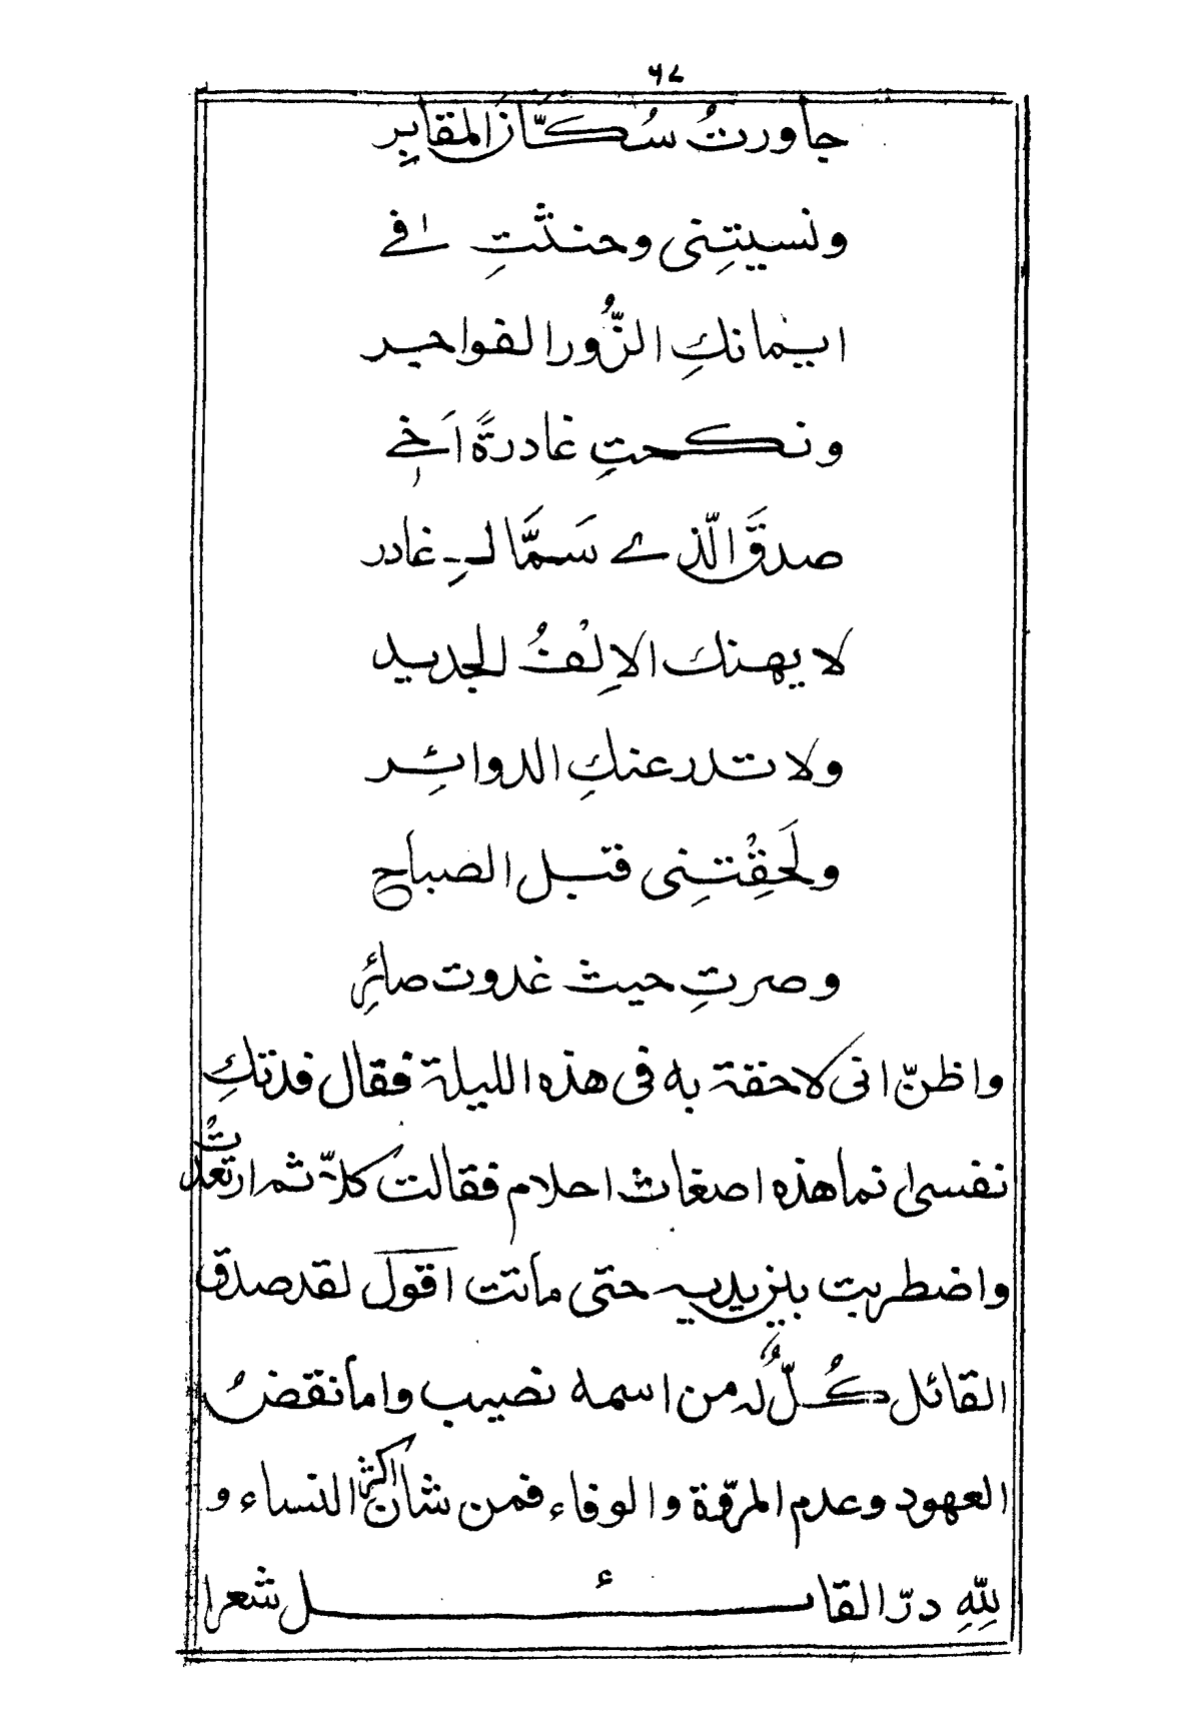 ٦٨
جاورتُ سُكّانَ المقابِرِ
ونسيتِنى وحنثتِ فى
ايمانكِ الزُّور الفواجر
ونكحتِ غادرةً اَخى
صدقَ الّذى سَمَّاكِ غادر
لا يهنك الاِلْفُ الجديد
ولا تدر عنكِ الدوائِر
ولَحِقْتِنى قبل الصباح
وصرتِ حيث غدوت صائِر
واظنّ انى لاحقة به فى هذه الليلة فقال فدتكِ
نفسى انما هذه اضغاث احلام فقالت كلاّ ثم ارتعدتْ
واضطربت بين يديه حتى ماتت اقول لقد صدق
القائل كُلٌّ له من اسمه نصيب واما نقضُ
العهود وعدم المروّة والوفاء فمن شان اكثر النساء و
لِلّهِ درّ القائل شعرا